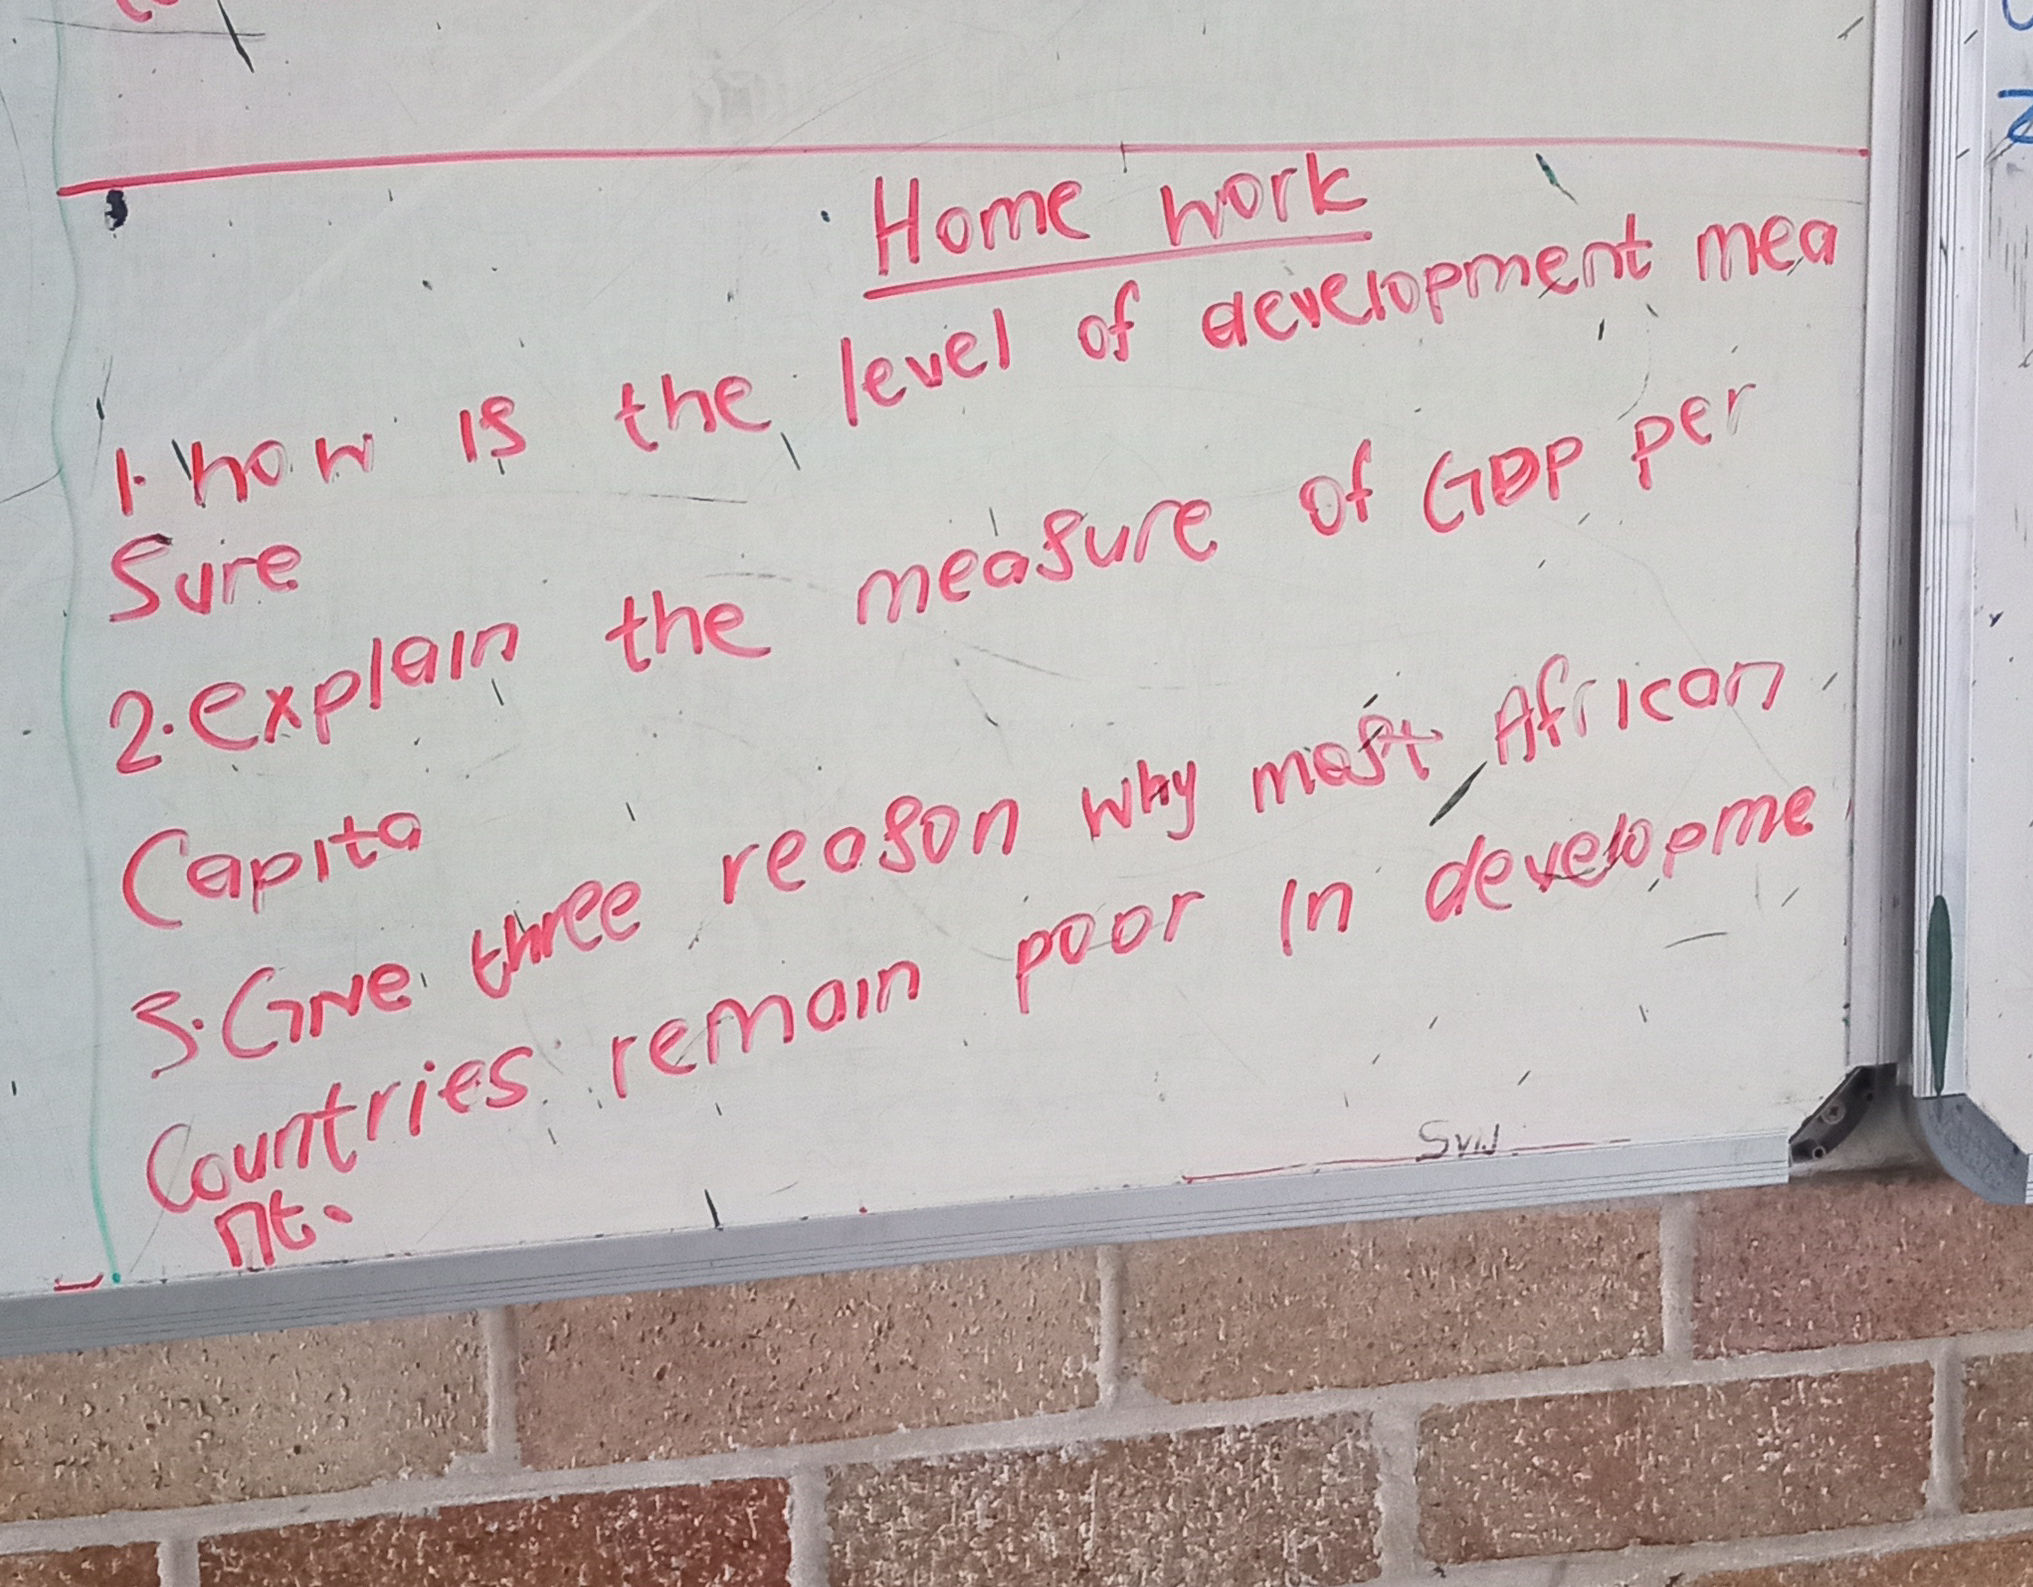 Home work
1. how is the level of development mea
Sure
2. explain the measure of GDP per
Capita
3. Give three reason why most African
Countries remain poor in developme
nt.